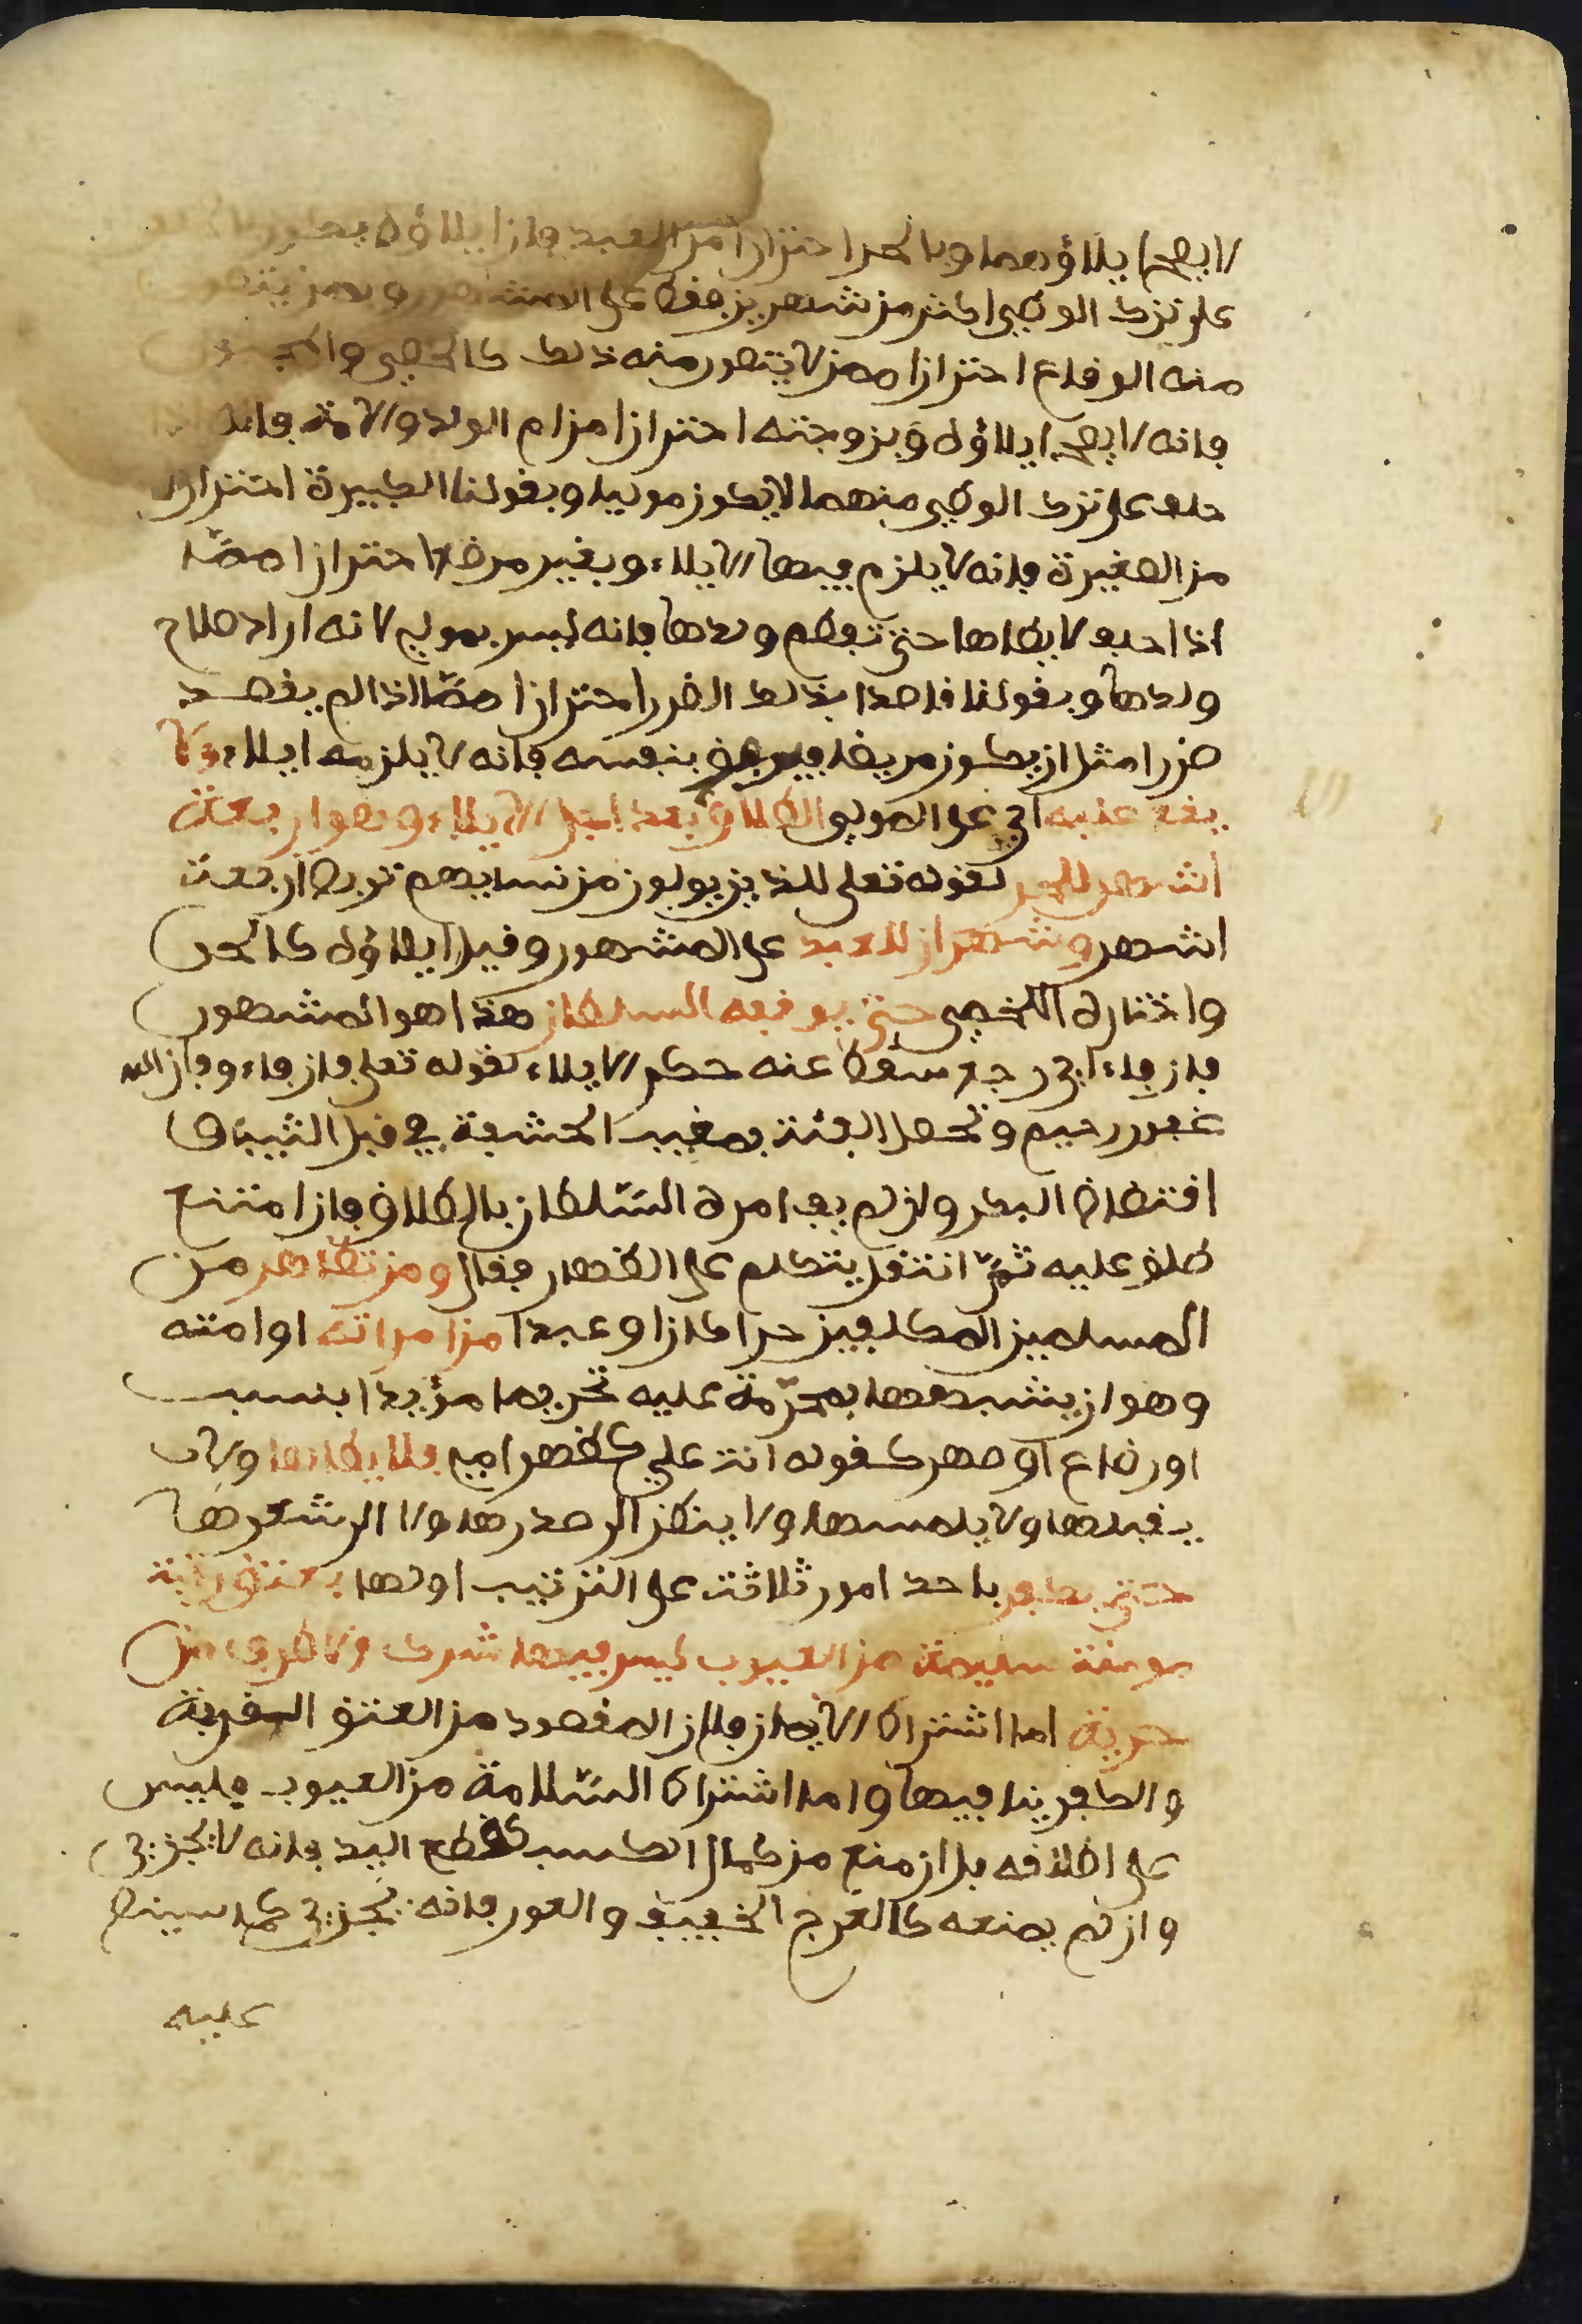 لا يصح ايلاؤهما وبالحر احترازا من العبد فان ايلاؤه يكون
على ترك الوطيء اكثر من شهرين فقط على المشهور وبمن يتصور
منه الوقاع احترازا ممن لا يتصور منه ذلك كالخصي والمجبوب
فانه لا يصح ايلاؤه وبزوجته احترازا من ام الولد والامة فانه اذا
حلف على ترك الوطيء منهما لا يكون موليا وبقولنا الكبيرة احترازا
من الصغيرة فانه لا يلزم فيها الايلاء وبغير مرضع احترازا مما
اذا حلف لا يطاها حتى تفطم ولدها فانه ليس بمولي لانه اراد صلاح
ولدها وبقولنا قاصدا بذلك الضرر احترازا مما اذا لم يقصد
ضررا مثل ان يكون مريضا بنفسه فانه لا يلزمه ايلاء ولا
يقع عليه اي على المولي الطلاق بعد اجل الايلاء وهو اربعة
اشهر للحر لقوله تعلى للذين يولون من نسايهم تربص اربعة
اشهر وشهران للعبد على المشهور وقيل ايلاؤه كالحر
واختاره اللخمي حتى يوقفه السلطان هذا هو المشهور
فان فاء اي رجع سقط عنه حكم الايلاء لقوله تعلى فان فاءو فان الله
غفور رحيم وتحصل الفئة بمغيب الحشفة في قبل الثيب او
افتضاض البكر ولو لم يف امره السلطان بالطلاق فان امتنع
طلق عليه ثم انتقل يتكلم على الظهار فقال ومن تظاهر من
المسلمين المكلفين حرا كان او عبدا من امراته او امته
وهو ان يشبهها بمحرمة عليه تحريما مؤبدا بنسب
او رضاع او صهر كقوله انت علي كظهر امي فلا يطاها ولا
يقبلها ولا يلمسها ولا ينظر الى صدرها ولا الى شعرها
حتى يكفر باحد امور ثلاثة على الترتيب اولها بعتق رقبة
مومنة سليمة من العيوب ليس فيها شرك ولا طرف من
حرية اما اشتراط الايمان فلان المقصود من العتق القربة
والكفر ينافيها واما اشتراط السلامة من العيوب فليس
على اطلاقه بل ان منع من كمال الكسب كقطع اليد فانه لا يجزي
وان لم يمنعه كالعرج الخفيف والعور فانه يجزي كما سينص
عليه